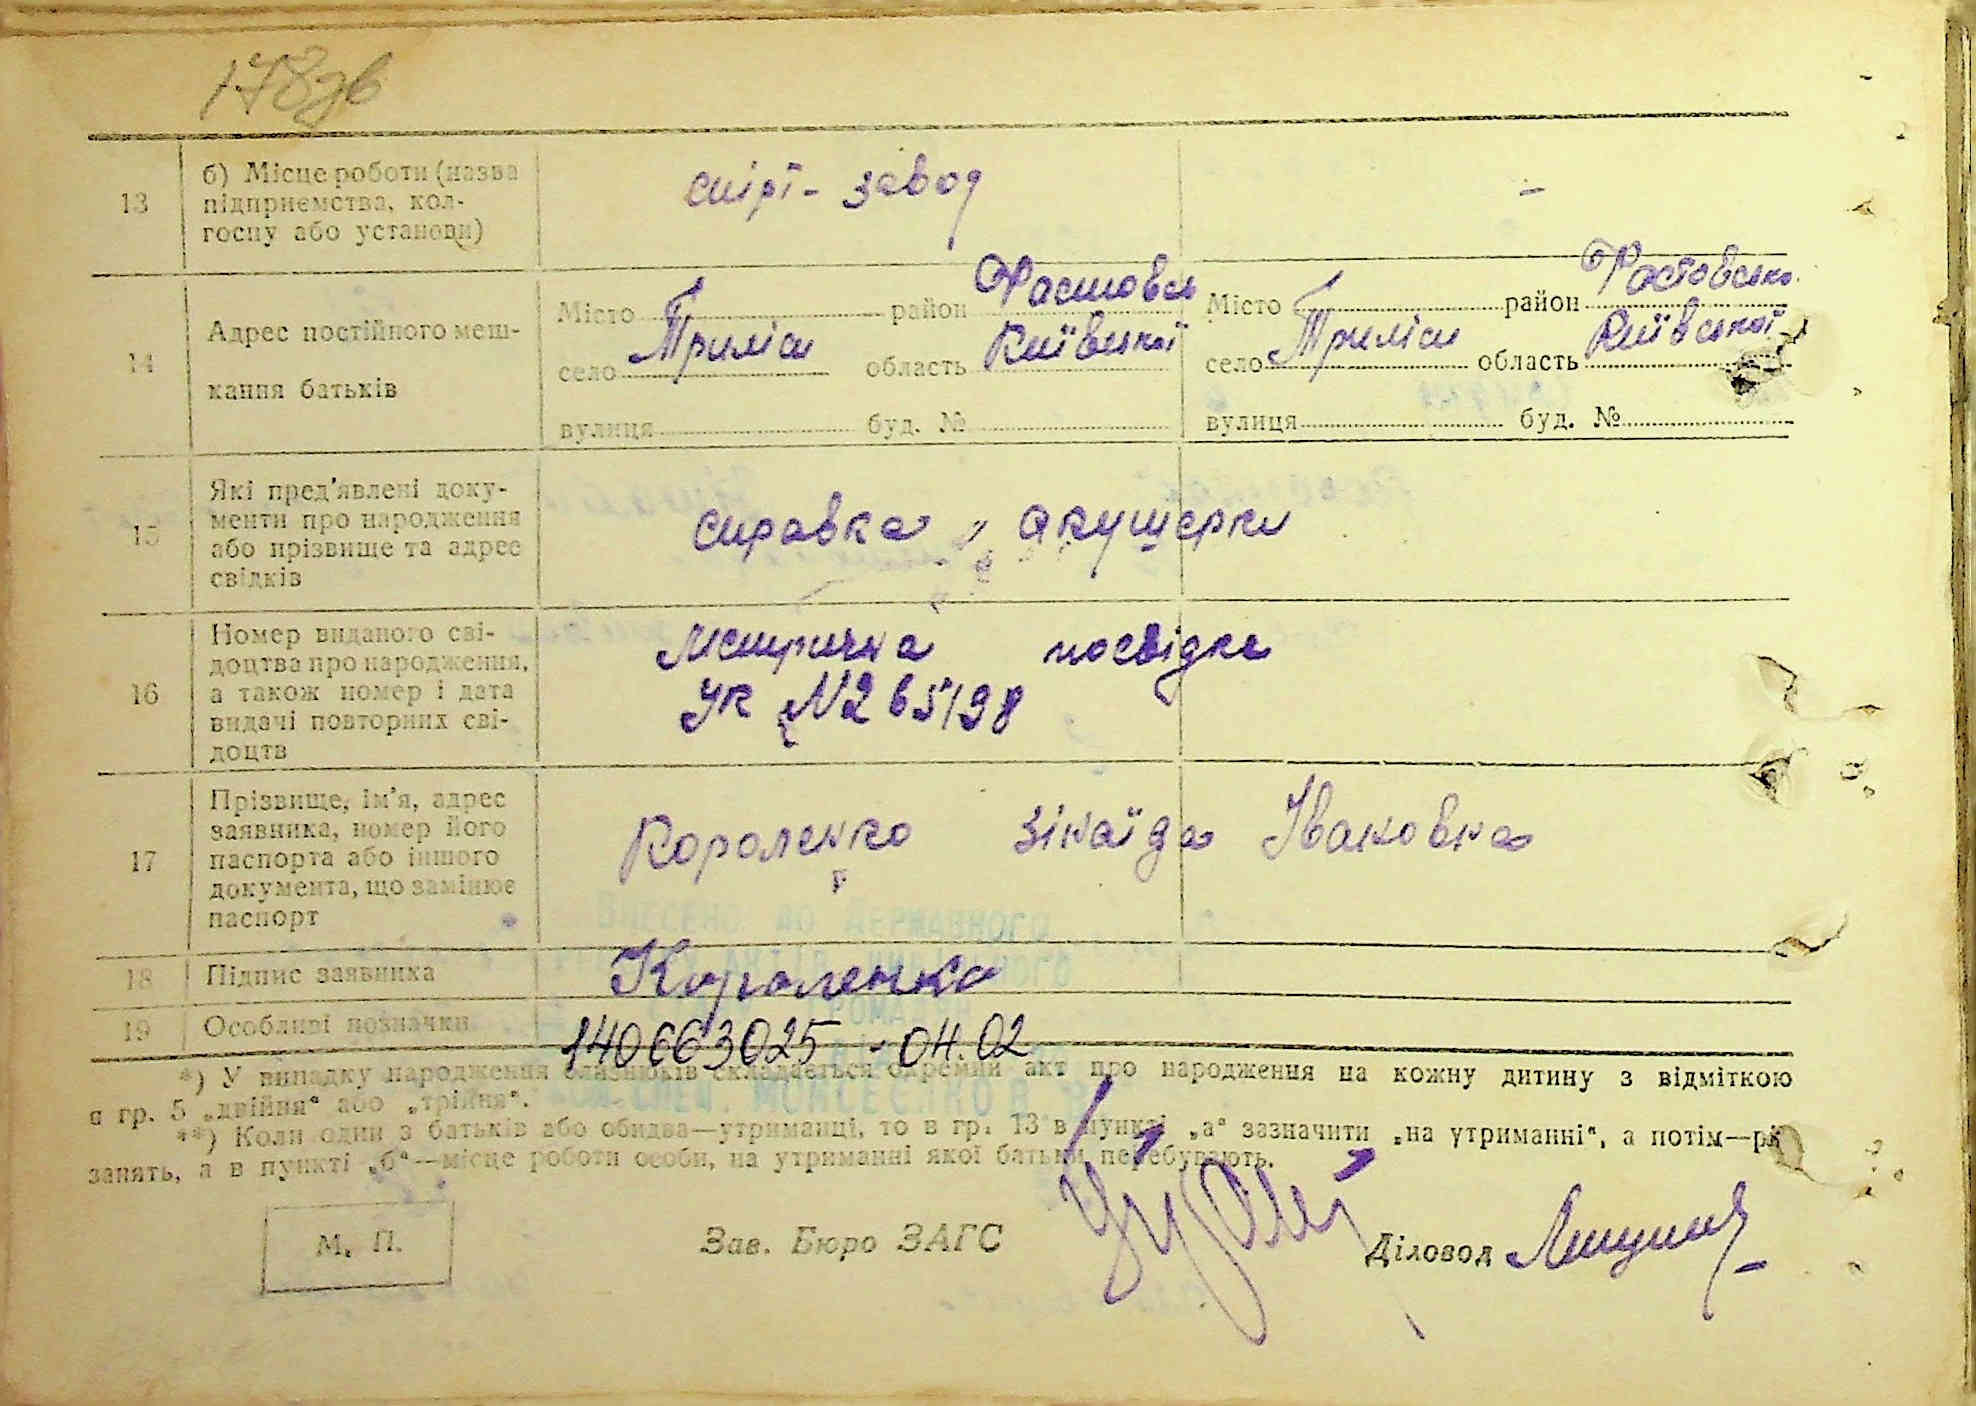 178зв
13
б) Місце роботи (назва
підприємства, кол-
госпу або установи)
спірт-завод
-
14
Адрес постійного меш-
кання батьків
Місто район Фастовськ
село Триліси область Київської
вулиця буд. №
Місто район Фастовсько
село Триліси область Київської
вулиця буд. №
15
Які пред'явлені доку-
менти про народження
або прізвище та адрес
свідків
справка акушерки
16
Номер виданого сві-
доцтва про народження,
а також номер і дата
видачі повторних сві-
доцтв
Метрична посвідка
УК N265198
17
Прізвище, ім'я, адрес
заявника, номер його
паспорта або іншого
документа, що замінює
паспорт
Короленко Зінаїда Івановна
18
Підпис заявника
Короленко
19
Особливі позначки
140663025 - 04.02
*) У випадку народження близнюків складається окремий акт про народження на кожну дитину з відміткою
в гр. 5 „двійня“ або „трійня“.
**) Коли один з батьків або обидва—утриманці, то в гр. 13 в пункті „а“ зазначити „на утриманні“, а потім—рід
занять, а в пункті „б“—місце роботи особи, на утриманні якої батьки перебувають.
М. П.
Зав. Бюро ЗАГС
Діловод